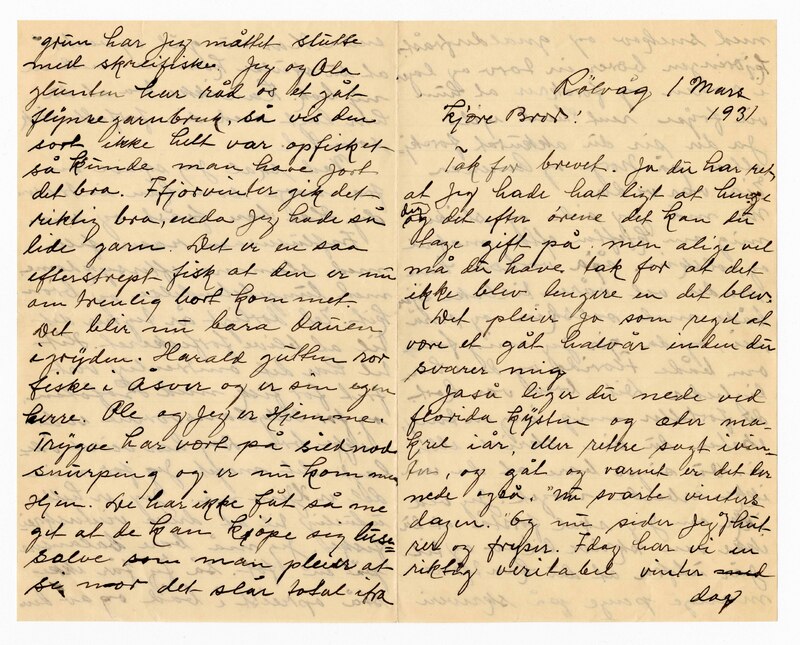 grun har jeg måttet slutte
med skreifiske. Jeg og Ola
glunten har råd os et gåt
flynregarnbruk, så vis den
sort ikke helt var opfisket
så kunde man have jort
det bra. Ffjorvinter gik det
riktig bra, enda jeg hade så
lede garn. Det er en saa
efterstrept fisk at den er nu
omtrenlig bort kommet.
Det blir nu bara Dauen
i gryden. Harald gutten ror
fiske i Åsver og er sin egen
herre. Ole og jeg er Hjemme.
Trygve har vort på sildnod
snurping og er nu kommen
Hjem. De har ikke fåt så me
get at de kan kjøpe sig luse=
salve som man pleier at
si nor det slår total ifra
Rölvåg 1 Mars
1931
Kjöre Bror!
Tak for brevet. Ja du har ret,
at jeg hade hat ligt at henge
dig
og det efter örene det kan du
tage gift på. men alige vel
må du have tak for at det
ikke blev lengere en det blev.
Det pleier jo som regel at
vøre et gåt halvår inden du
svarer mig
Jaså liger du nede ved
florida kysten og æder ma-
krel i år, eller retere sagt i vin-
ter, og gåt og varmt er det der
nede også. "Nu svarte vinters
dagen." Og nu sider jeg hut
rer og fryser. Idag har vi en
riktig veritabel vinter med
dag